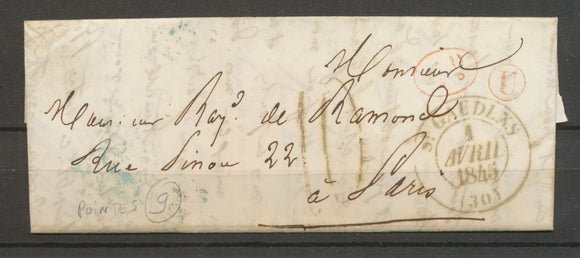 Monsieur
Monsieur Ray.d de Ramond
Rue Pinon 22
à Paris
ST GAUDENS
4
AVRIL
1845
(30)
POINTES 9